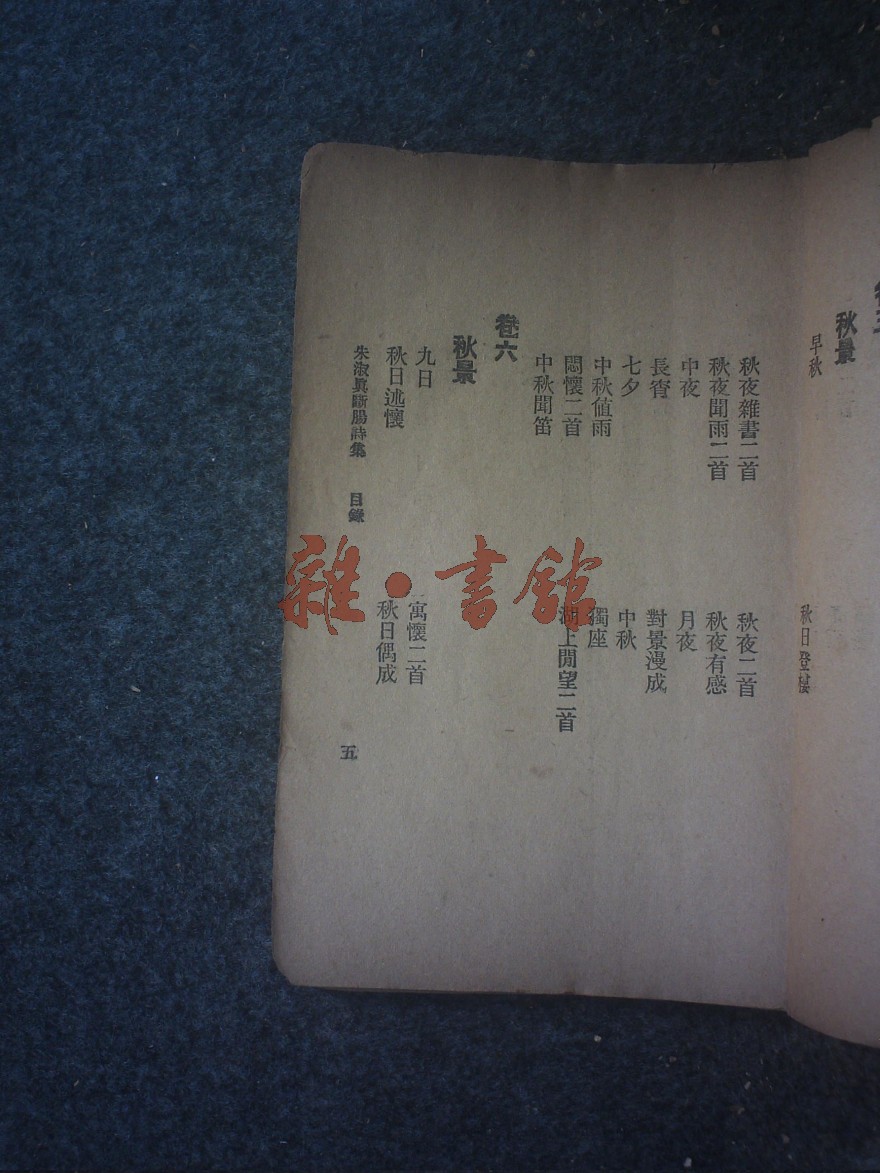 秋景
早秋
秋日登樓
秋夜雜書二首
秋夜二首
秋夜聞雨二首
秋夜有感
中夜
月夜
長宵
對景漫成
七夕
中秋
中秋値雨
獨座
悶懷二首
湖上閒望二首
中秋聞笛
卷六
秋景
九日
寓懷二首
秋日述懷
秋日偶成
朱淑眞斷腸詩集 目錄
五
雜·書館